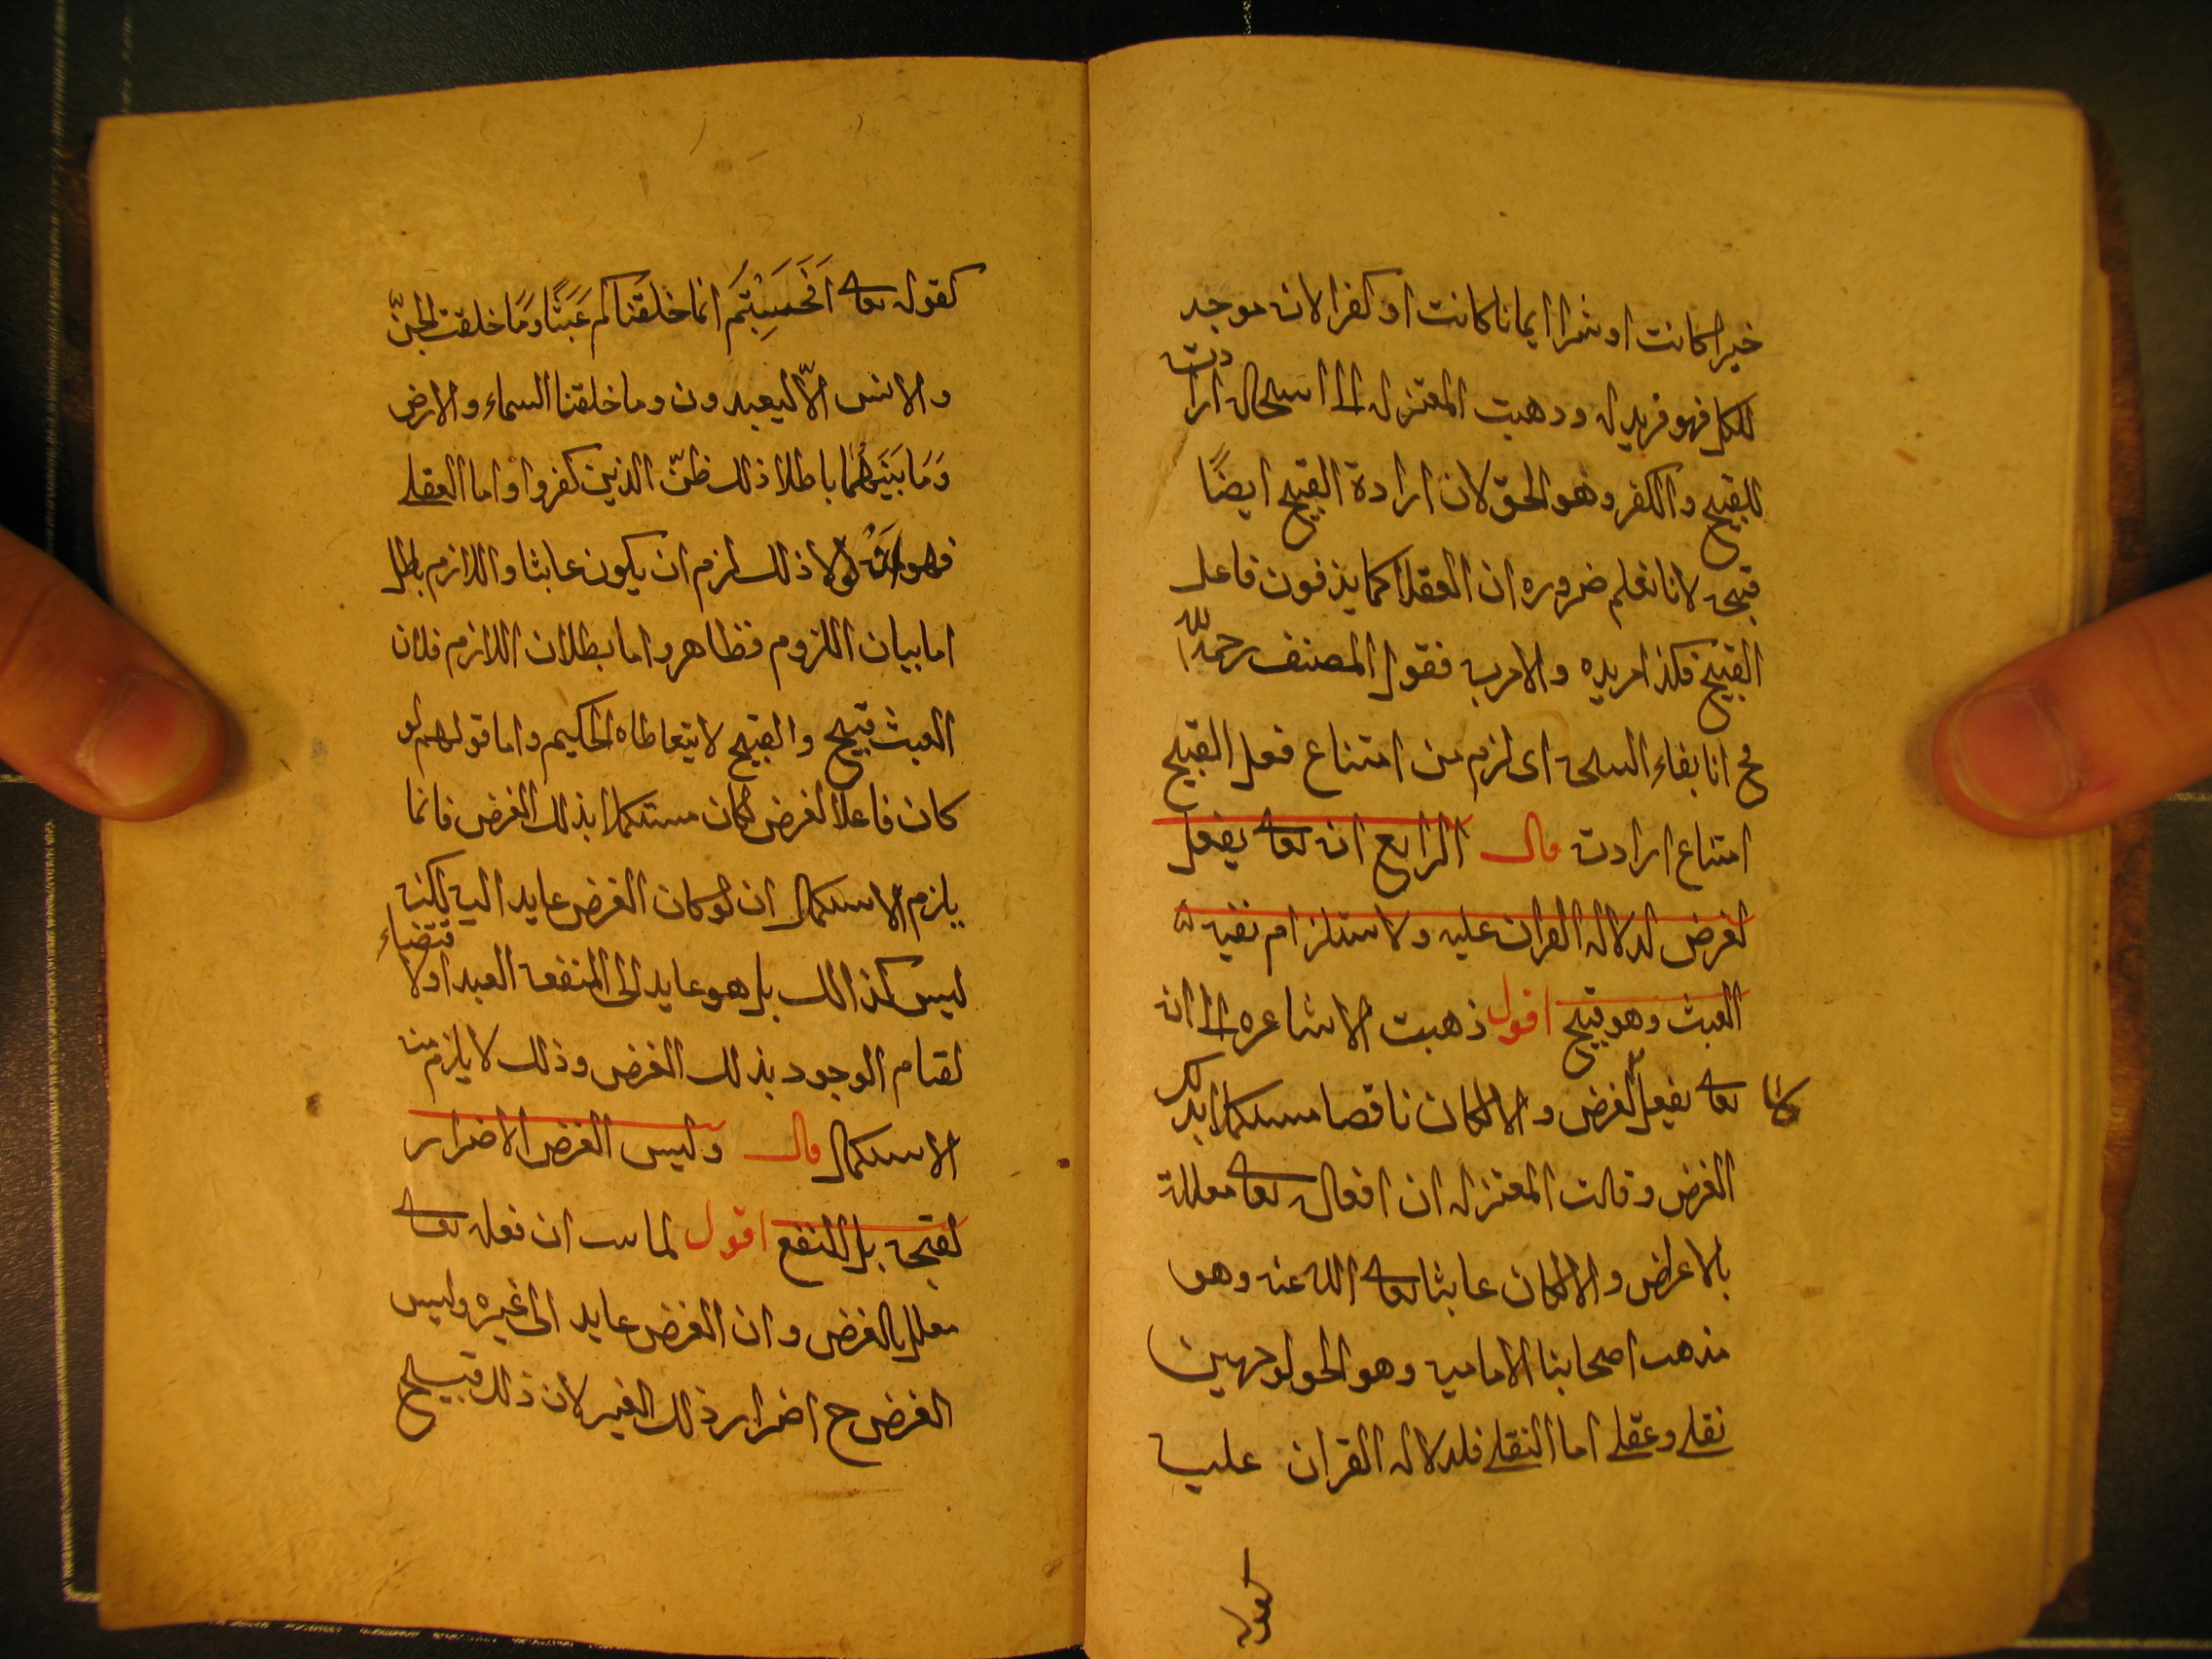 خيرا كانت او شرا ايمانا كانت او كفرا لانه موجد
للكل فهو مريد له و ذهبت المعتزله الى استحاله ارادته
للقبيح و الكفر و هو الحق لان ارادة القبيح ايضًا
قبيحه لانا نعلم ضروره ان العقلا كما يذمون فاعل
القبيح فكذا مريده و الامر به فقول المصنف رحمه الله
اى لزم من امتناع فعل القبيح
امتناع ارادته قال الرابع انه تعالى يفعل
لغرض لدلاله القران عليه و لاستلزام نفيه
العبث و هو قبيح اقول ذهبت الاشاعره الى انه
تعالى لا يفعل لغرض و الا لكان ناقصا مستكملا بذلك
الغرض و قالت المعتزله ان افعاله تعالى معللة
بالاغراض و الا لكان عابثا تعالى الله عنه و هو
مذهب اصحابنا الاماميه و هو الحق لوجهين
نقلي و عقلي اما النقلي فلدلاله القران عليه
كقوله
كقوله تعالى اَفَحَسِبْتُم انما خلقنَاكم عَبَثًا وَمَا خلقت الجنّ
و الانس الّا ليعبدون و ما خلقنا السماء و الارض
وَمَا بَيْنَهُمَا باطلا ذلك ظنّ الذين كفروا و اما العقلي
فهو انه لولا ذلك لزم ان يكون عابثا و اللازم باطل
اما بيان اللزوم فظاهر و اما بطلان اللازم فلان
العبث قبيح و القبيح لا يتعاطاه الحكيم و اما قولهم لو
كان فاعلا لغرض لكان مستكملا بذلك الغرض فانما
يلزم الاستكمال ان لو كان الغرض عايد اليه لكنه
ليس كذالك بل هو عايد الى المنفعة العبد او لاقتضاء
لقنام الوجود بذلك الغرض و ذلك لا يلزم منه
الاستكمال قال و ليس الغرض الاضرار
لقبحه بل النفع اقول لما ثبت ان فعله تعالى
معلل بالغرض و ان الغرض عايد الى غيره و ليس
الغرض ح اضرار ذلك الغير لان ذلك قبيح